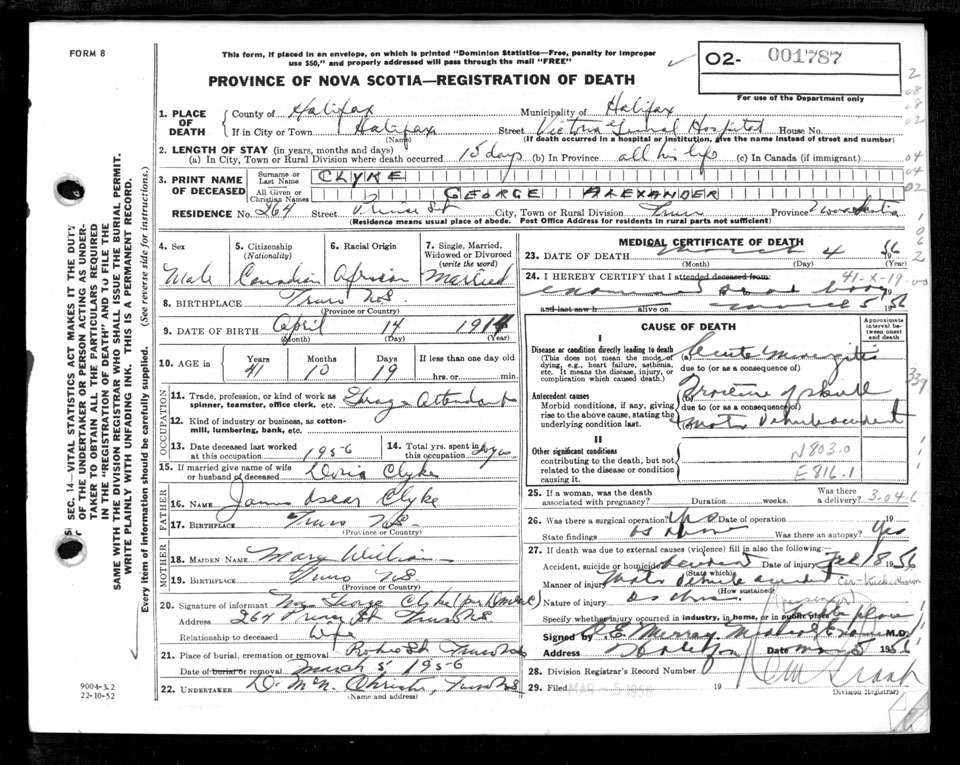 FORM 8
This form, if placed in an envelope, on which is printed "Dominion Statistics—Free, penalty for improper
use $50," and properly addressed will pass through the mail "FREE"
O2- 001787
For use of the Department only
PROVINCE OF NOVA SCOTIA—REGISTRATION OF DEATH
1. PLACE OF DEATH
County of Halifax Municipality of Halifax
If in City or Town Halifax Street Victoria General Hospital House No.
(Name) (If death occurred in a hospital or institution, give the name instead of street and number)
2. LENGTH OF STAY (in years, months and days)
(a) In City, Town or Rural Division where death occurred 15 days (b) In Province all his life (c) In Canada (if immigrant)
3. PRINT NAME OF DECEASED
Surname or Last Name CLYKE
All Given or Christian Names GEORGE ALEXANDER
RESIDENCE No. 264 Street Prince St City, Town or Rural Division Truro Province Nova Scotia
(Residence means usual place of abode. Post Office Address for residents in rural parts not sufficient)
4. Sex Male
5. Citizenship (Nationality) Canadian
6. Racial Origin African
7. Single, Married, Widowed or Divorced (write the word) Married
8. BIRTHPLACE Truro N.S.
(Province or Country)
9. DATE OF BIRTH April 14 1914
(Month) (Day) (Year)
10. AGE in Years Months Days If less than one day old
41 10 19 hrs. or min.
OCCUPATION
11. Trade, profession, or kind of work as spinner, teamster, office clerk, etc. Attendant
12. Kind of industry or business, as cotton-mill, lumbering, bank, etc.
13. Date deceased last worked at this occupation 1956
14. Total yrs. spent in this occupation
15. If married give name of wife or husband of deceased Doris Clyke
FATHER
16. NAME James Oscar Clyke
17. BIRTHPLACE Truro N.S.
(Province or Country)
MOTHER
18. MAIDEN NAME Mary William
19. BIRTHPLACE Truro N.S.
(Province or Country)
20. Signature of informant Mrs George Clyke
Address 264 Prince St Truro N.S.
Relationship to deceased Wife
21. Place of burial, cremation or removal Robie St Truro N.S.
Date of burial or removal March 5 1956
22. UNDERTAKER Truro N.S.
(Name and address)
MEDICAL CERTIFICATE OF DEATH
23. DATE OF DEATH March 4 56
(Month) (Day)
24. I HEREBY CERTIFY that I attended deceased from: 41-X-19
examined dead body
and last saw h alive on March 5 1956
CAUSE OF DEATH
Approximate interval between onset and death
I
Disease or condition directly leading to death (a) Acute Meningitis
(This does not mean the mode of dying, e.g., heart failure, asthenia, etc. It means the disease, injury, or complication which caused death.)
due to (or as a consequence of)
Fracture of skull
Antecedent causes
Morbid conditions, if any, giving rise to the above cause, stating the underlying condition last.
due to (or as a consequence of)
Motor Vehicle accident
II
Other significant conditions
contributing to the death, but not related to the disease or condition causing it.
N803.0
E816.1
339
25. If a woman, was the death associated with pregnancy? Duration weeks. Was there a delivery? 3-04-6
26. Was there a surgical operation? Date of operation
State findings as above Was there an autopsy? Yes
27. If death was due to external causes (violence) fill in also the following:
Accident, suicide or homicide? Accident Date of injury Feb 18 1956
(State which)
Manner of injury Motor Vehicle accident
(How sustained)
Nature of injury as above
Specify whether injury occurred in industry, in home, or in public place public place
Signed by Murray M.D.
Address Halifax Date Mar 5 1956
28. Division Registrar's Record Number
29. Filed MAR -5 1956 19
Division Registrar
SEC. 14—VITAL STATISTICS ACT MAKES IT THE DUTY
OF THE UNDERTAKER OR PERSON ACTING AS UNDER-
TAKER TO OBTAIN ALL THE PARTICULARS REQUIRED
IN THE "REGISTRATION OF DEATH" AND TO FILE THE
SAME WITH THE DIVISION REGISTRAR WHO SHALL ISSUE THE BURIAL PERMIT.
WRITE PLAINLY WITH UNFADING INK. THIS IS A PERMANENT RECORD.
Every item of information should be carefully supplied. (See reverse side for instructions.)
9004-3.2
22-10-52